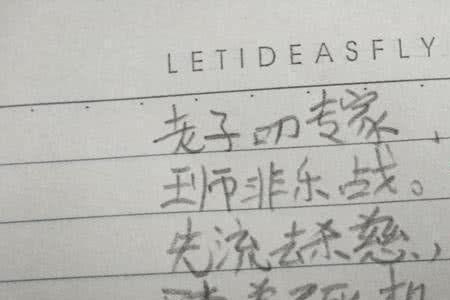 LETIDEASFLY
老子叨专家,
王师非乐战。
失流去杀慈,